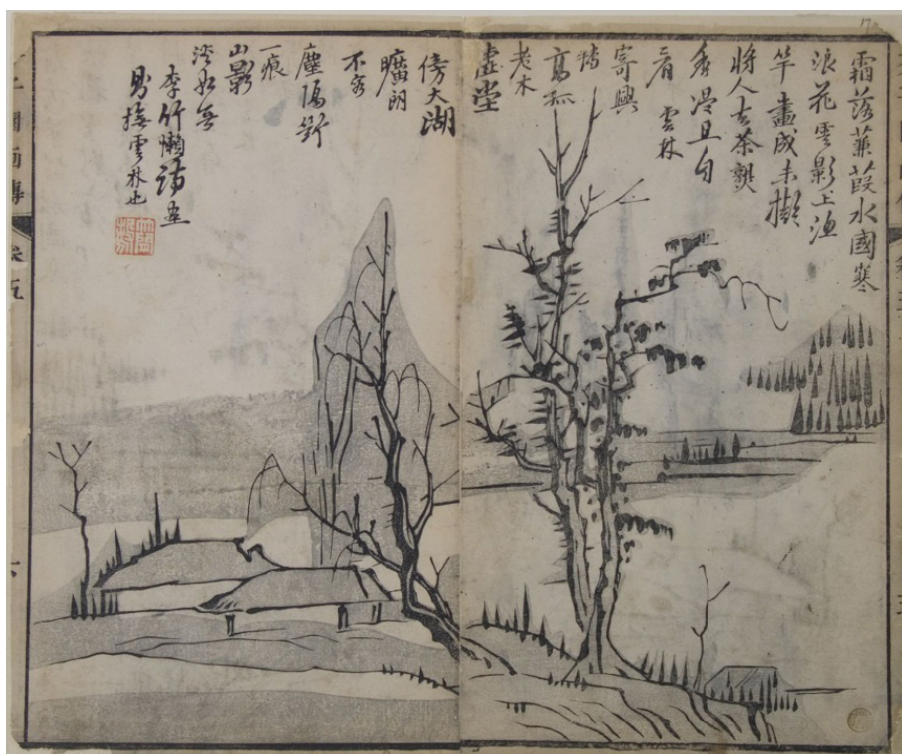 霜落蒹葭水國寒
浪花雲影上漁
竿畫成未擬
將人去茶熟
香溫且自
看 雲林
寄興
高孤
老木
虛堂
傍大湖
曠朗
不容
塵隔斷
一痕
山影
淡如無
李竹懶詩畫
撫雲林也
子園畫傳
卷五